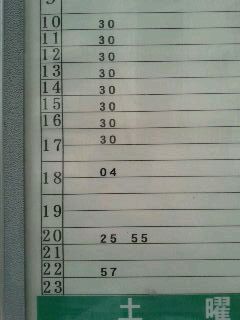 9
10 30
11 30
12 30
13 30
14 30
15 30
16 30
17 30
18 04
19
20 25 55
21
22 57
23
土 曜